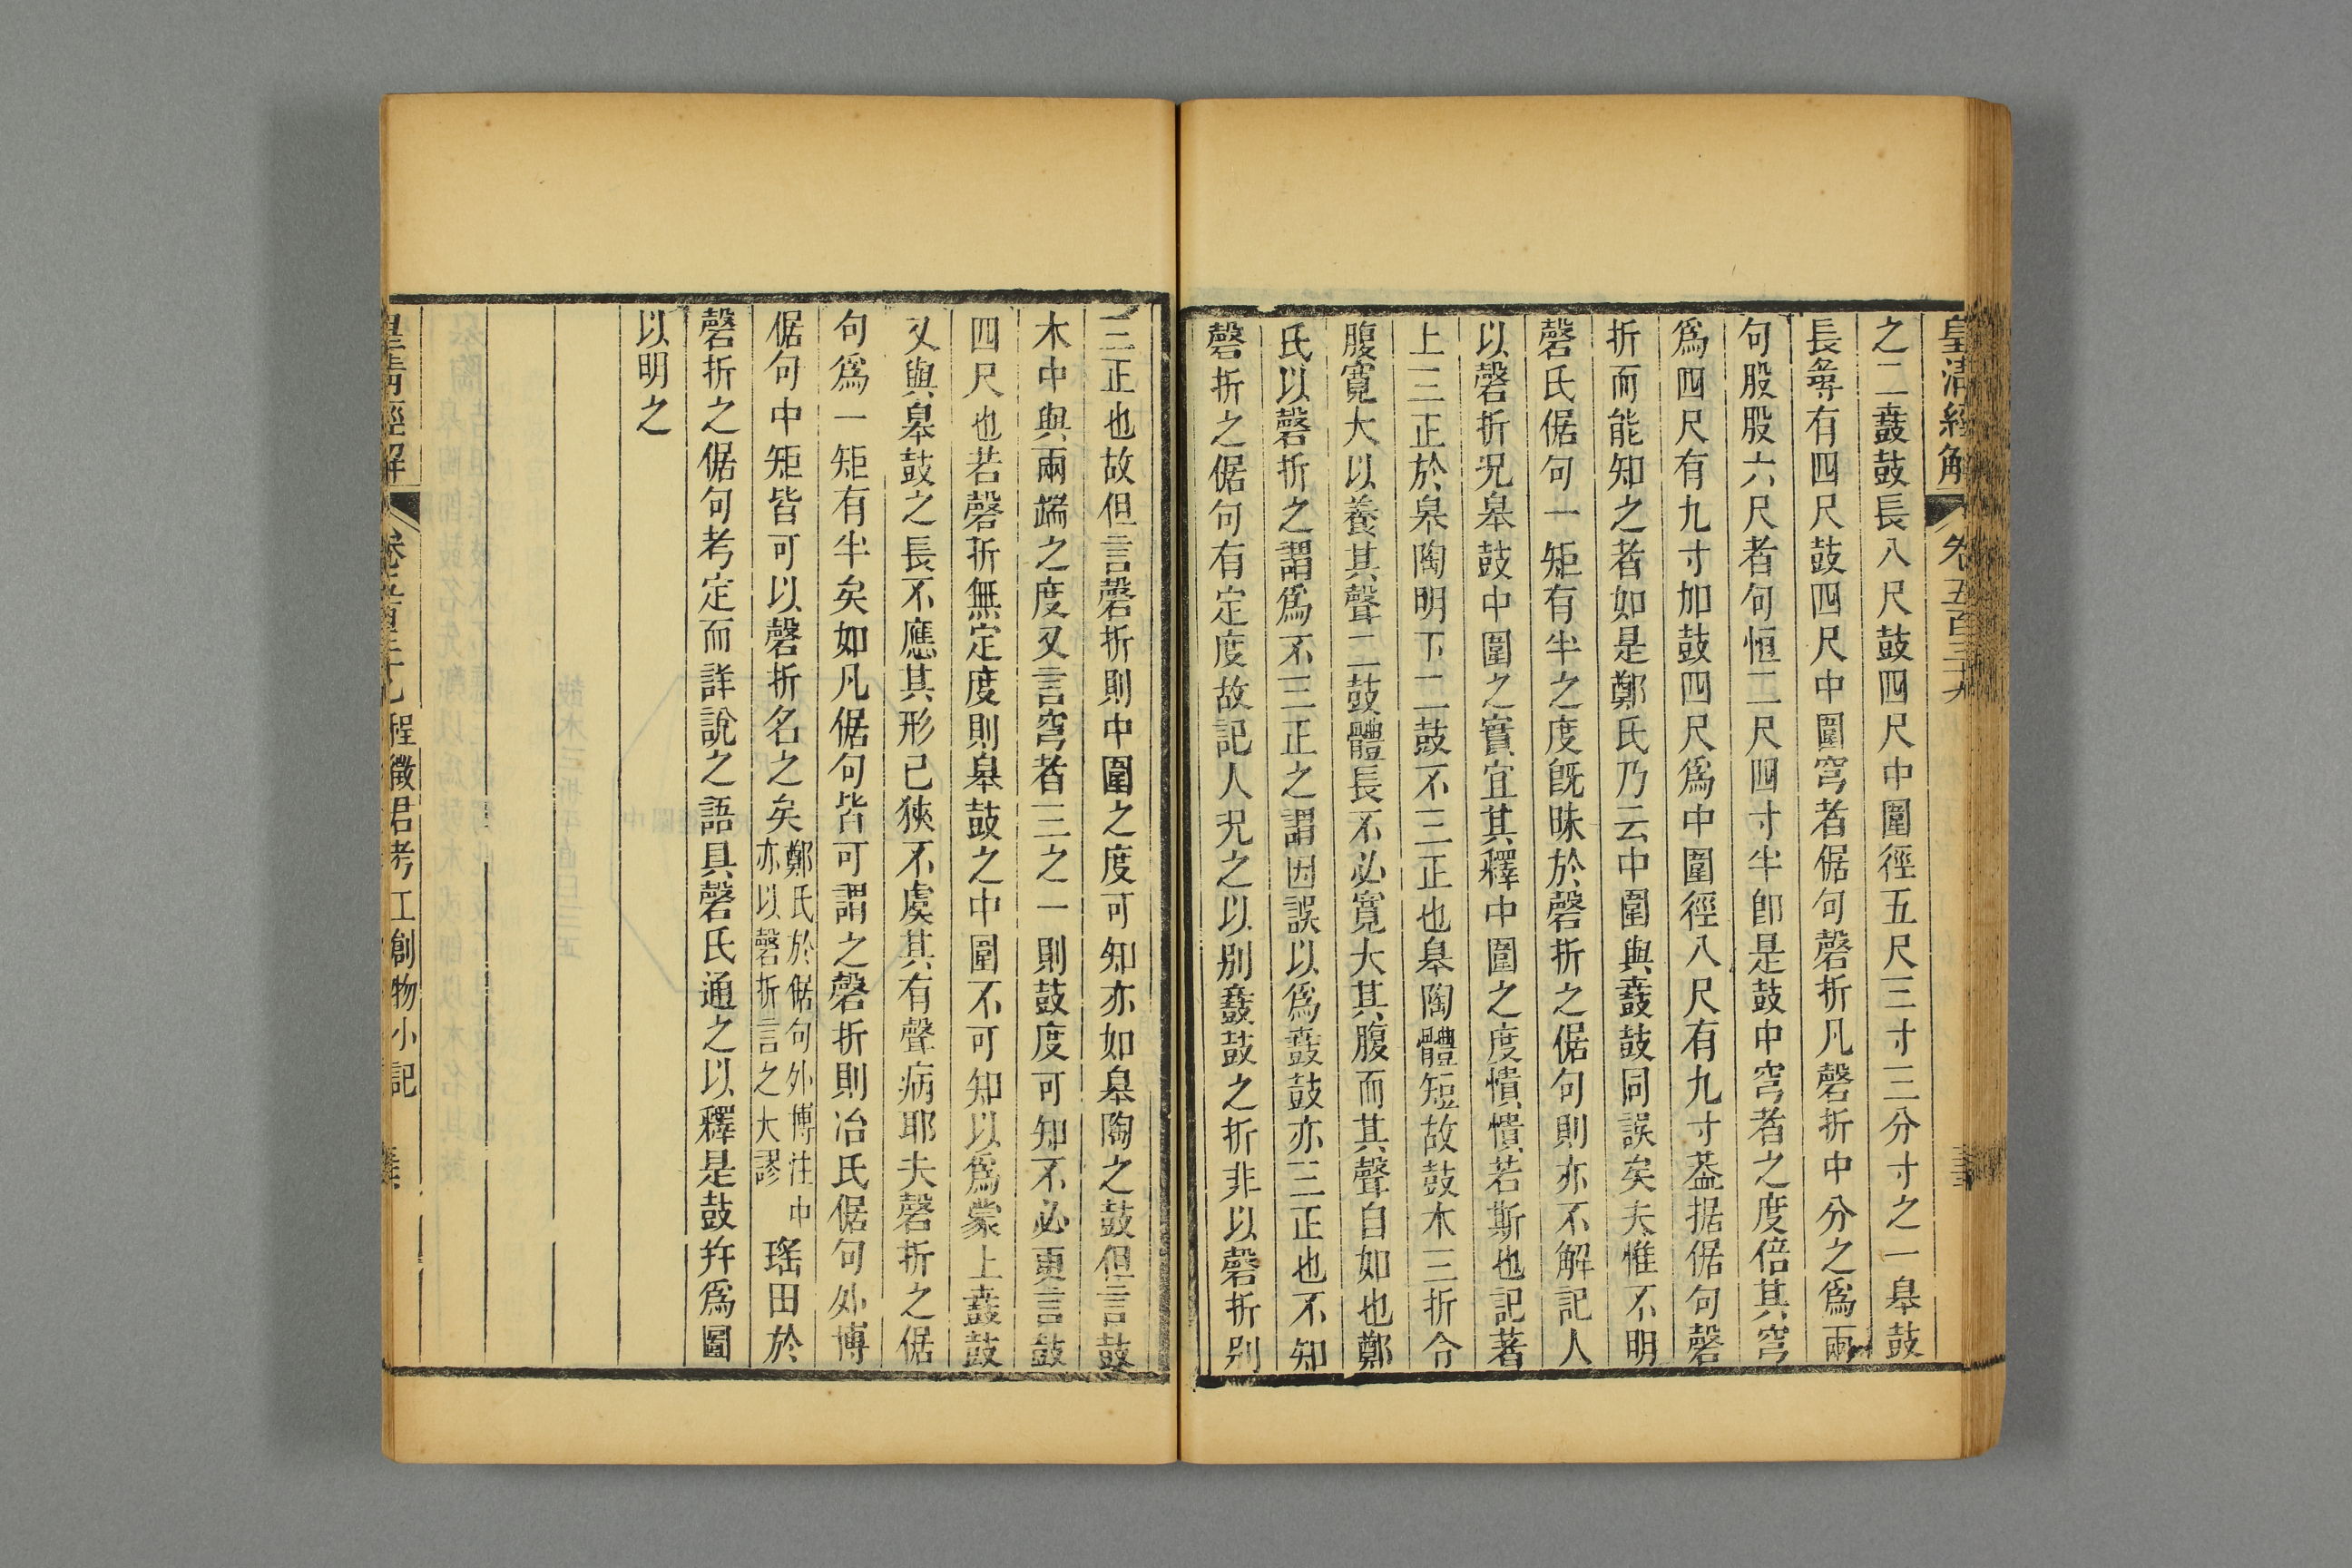 皇清經解 卷五百三十九
之二鼖鼓長八尺鼓四尺中圍徑五尺三寸三分寸之一皋鼓
長尋有四尺鼓四尺中圍穹者倨句磬折凡磬折中分之爲兩
句股股六尺者句恒二尺四寸半卽是鼓中穹者之度倍其穹
爲四尺有九寸加鼓四尺爲中圍徑八尺有九寸葢据倨句磬
折而能知之者如是鄭氏乃云中圍與鼖鼓同誤矣夫惟不明
磬氏倨句一矩有半之度旣昧於磬折之倨句則亦不解記人
以磬折況皋鼓中圍之實宜其釋中圍之度憒憒若斯也記著
上三正於皋陶明下二鼓不三正也皋陶體短故鼓木三折令
腹寬大以養其聲二鼓體長不必寬大其腹而其聲自如也鄭
氏以磬折之謂爲不三正之謂因誤以爲鼖鼓亦三正也不知
磬折之倨句有定度故記人況之以别鼖鼓之折非以磬折别
三正也故但言磬折則中圍之度可知亦如皋陶之鼓但言鼓
木中與兩端之度又言穹者三之一則鼓度可知不必更言鼓
四尺也若磬折無定度則皋鼓之中圍不可知以爲蒙上鼖鼓
又與皋鼓之長不應其形已狹不虞其有聲病耶夫磬折之倨
句爲一矩有半矣如凡倨句皆可謂之磬折則冶氏倨句外博
倨句中矩皆可以磬折名之矣鄭氏於倨句外博注中亦以磬折言之大謬瑤田於
磬折之倨句考定而詳說之語具磬氏通之以釋是鼓幷爲圖
以明之
皇清經解 卷五百三十九 程徵君考工創物小記